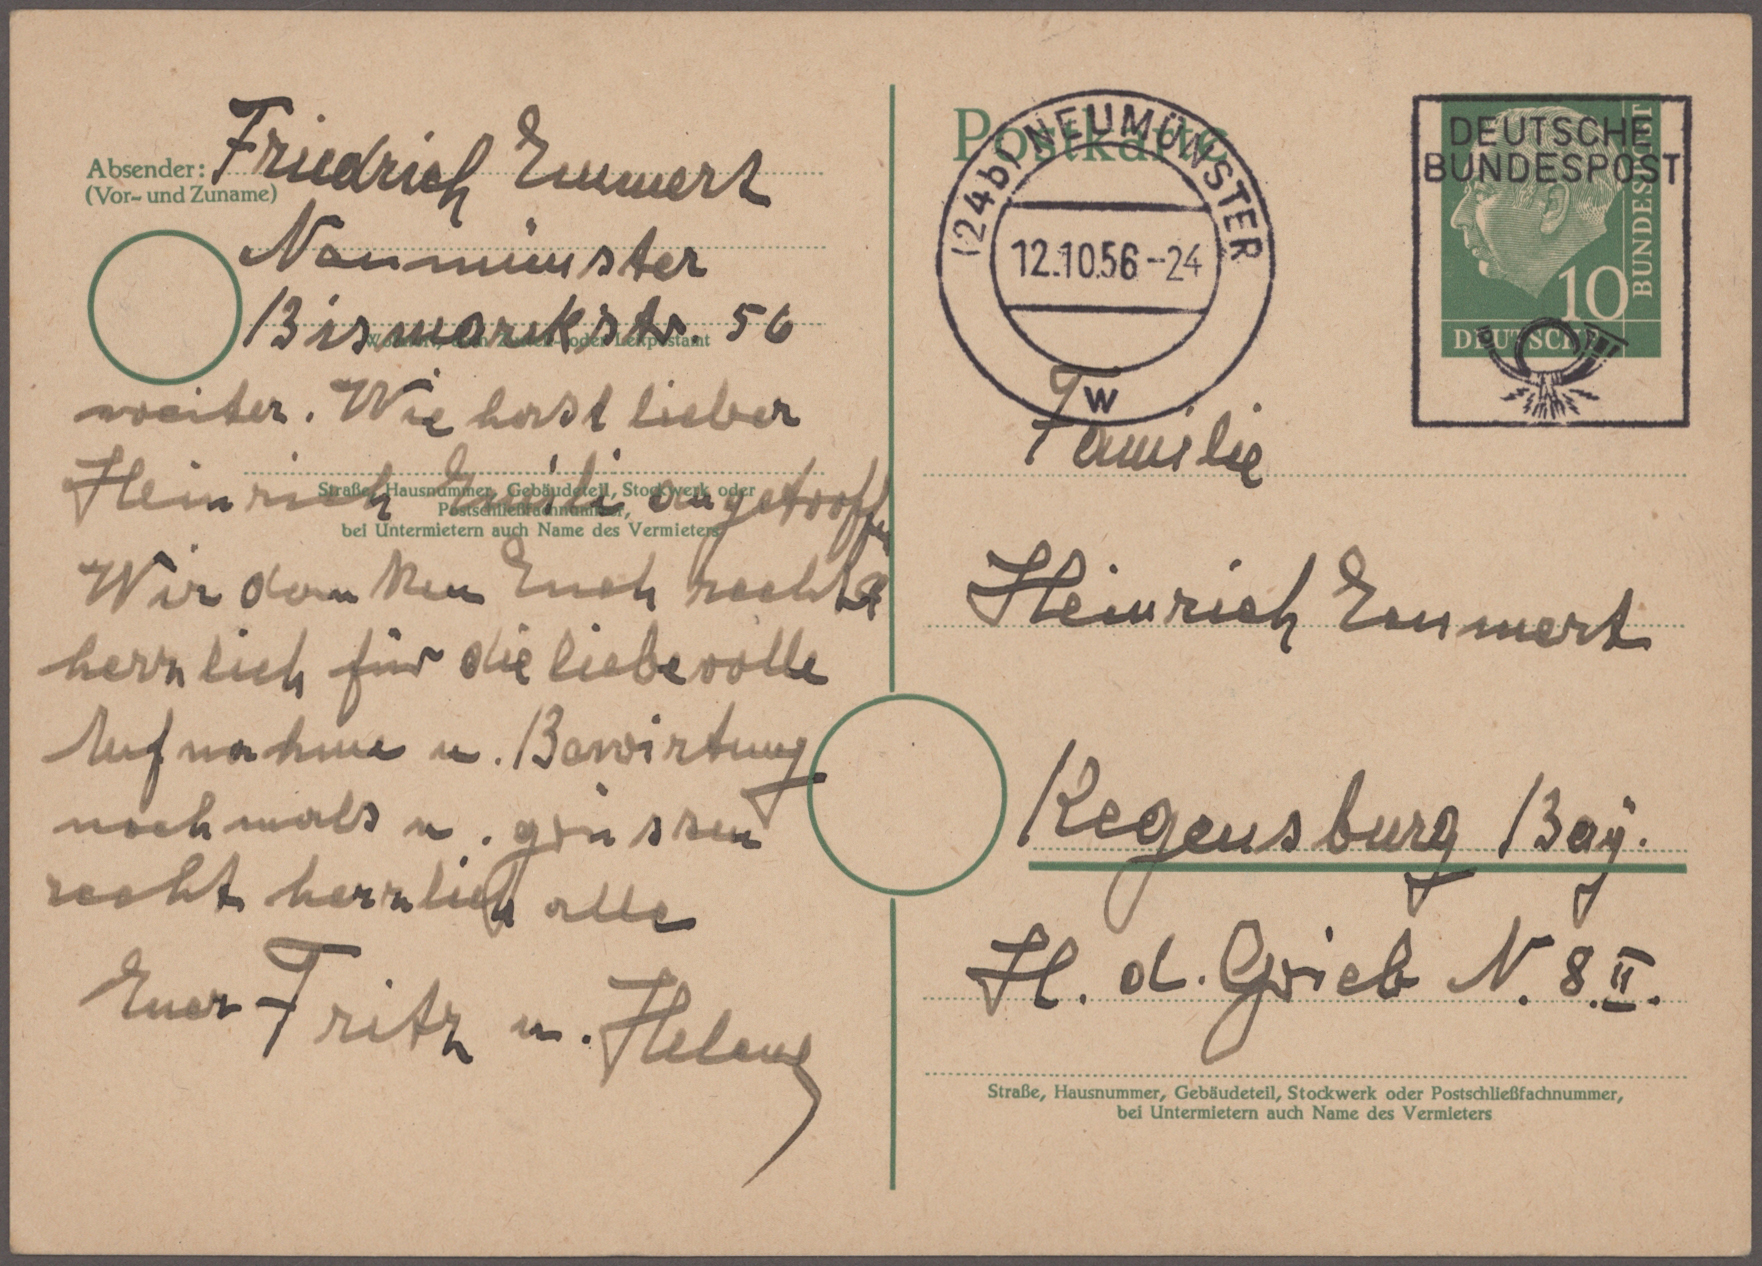 Absender:
(Vor- und Zuname)
Friedrich Emmert
Neumünster
Bismarckstr. 56
weiter. Wie hast lieber
Heinrich Emili angetroffen
Straße, Hausnummer, Gebäudeteil, Stockwerk oder
Postschließfachnummer,
bei Untermietern auch Name des Vermieters
Wir danken Euch recht
herzlich für die liebevolle
Aufnahme u. Bewirtung
nochmals u. grüssen
recht herzlich alle
Euer Fritz u. Helene
Postkarte
(24b) NEUMÜNSTER
12.10.56-24
w
DEUTSCHE
BUNDESPOST
10
DEUTSCHE
BUNDESPOST
Familie
Heinrich Emmert
Regensburg Bay.
H. d. Grieb N. 8.II.
Straße, Hausnummer, Gebäudeteil, Stockwerk oder Postschließfachnummer,
bei Untermietern auch Name des Vermieters